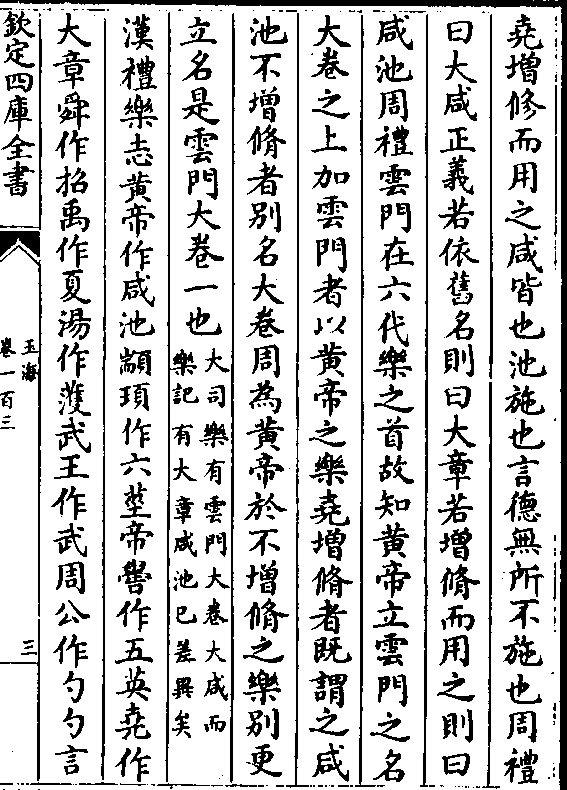 堯増修而用之咸皆也池施也言德無所不施也周禮
曰大咸正義若依舊名則曰大章若增脩而用之則曰
咸池周禮雲門在六代樂之首故知黄帝立雲門之名
大卷之上加雲門者以黄帝之樂堯增脩者既謂之咸
池不增脩者别名大卷周為黄帝於不增脩之樂别更
立名是雲門大卷一也大司樂有雲門大卷大咸而
樂記有大章咸池已差異矣
漢禮樂志黄帝作咸池顓頊作六莖帝嚳作五英堯作
大章舜作招禹作夏湯作濩武王作武周公作勺勺言
欽定四庫全書
玉海
卷一百三
三